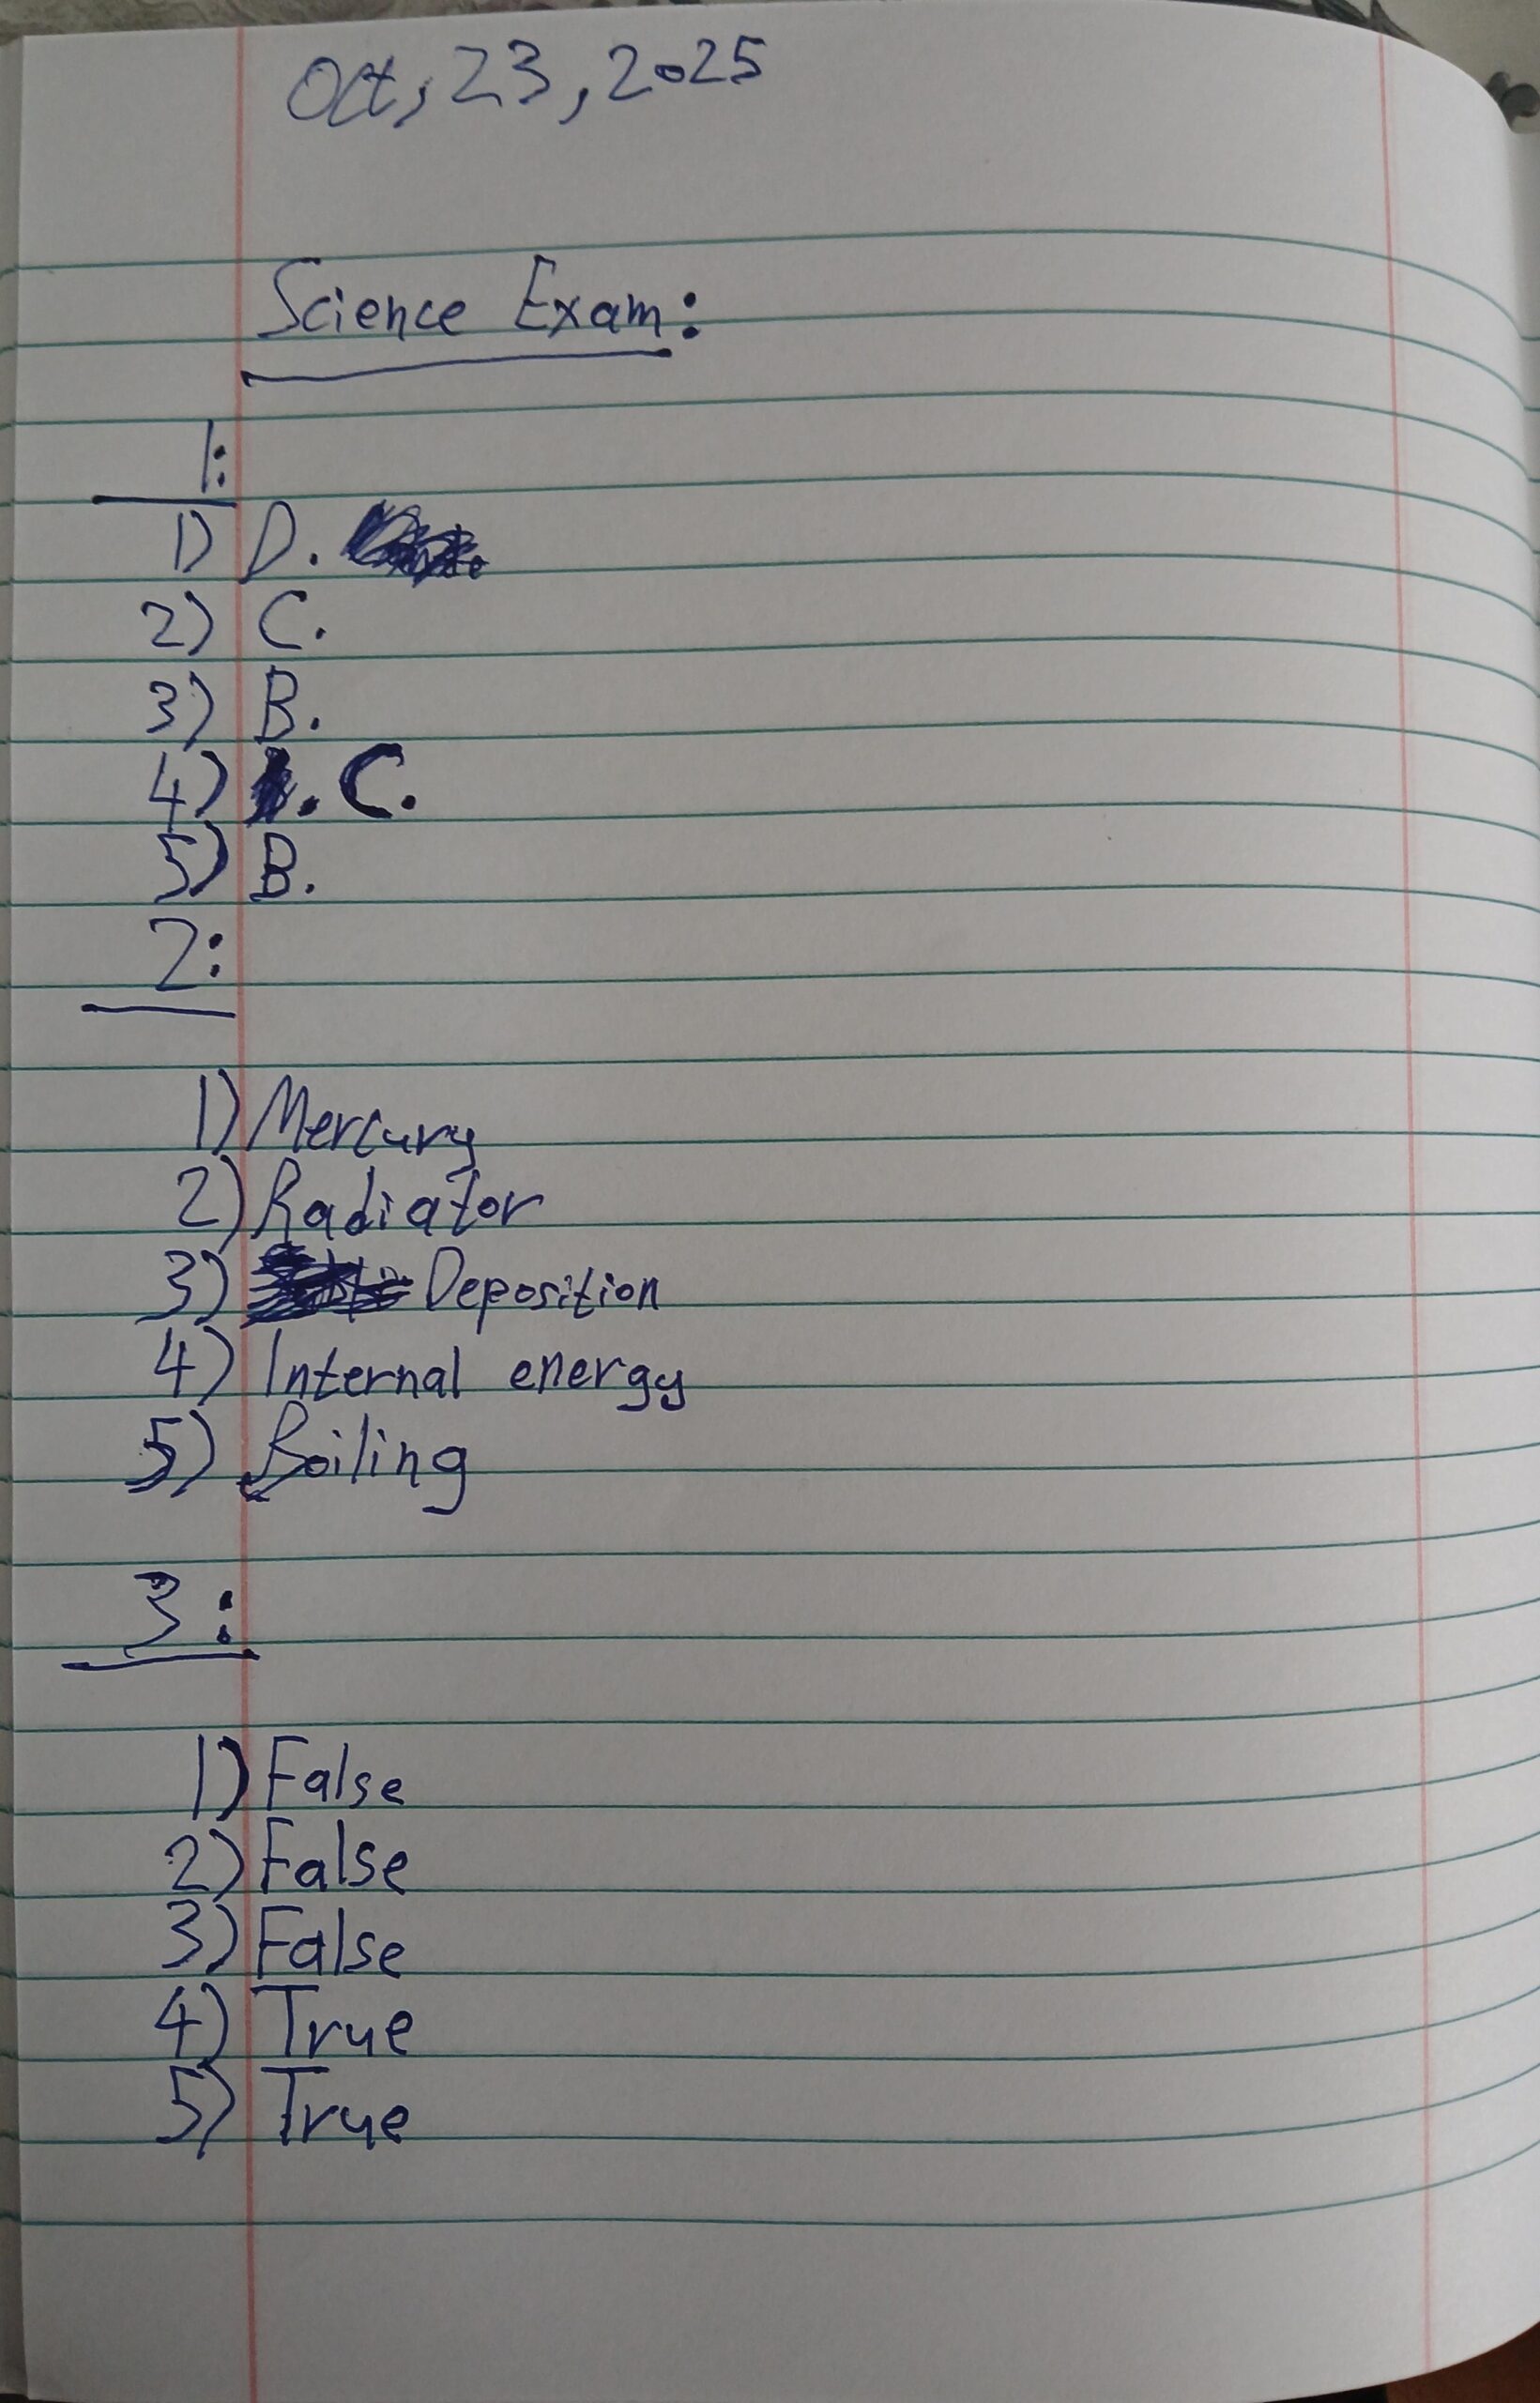 Oct, 23, 2025
Science Exam:
1:
1) D.
2) C.
3) B.
4) C.
5) B.
2:
1) Mercury
2) Radiator
3) Deposition
4) Internal energy
5) Boiling
3:
1) False
2) False
3) False
4) True
5) True